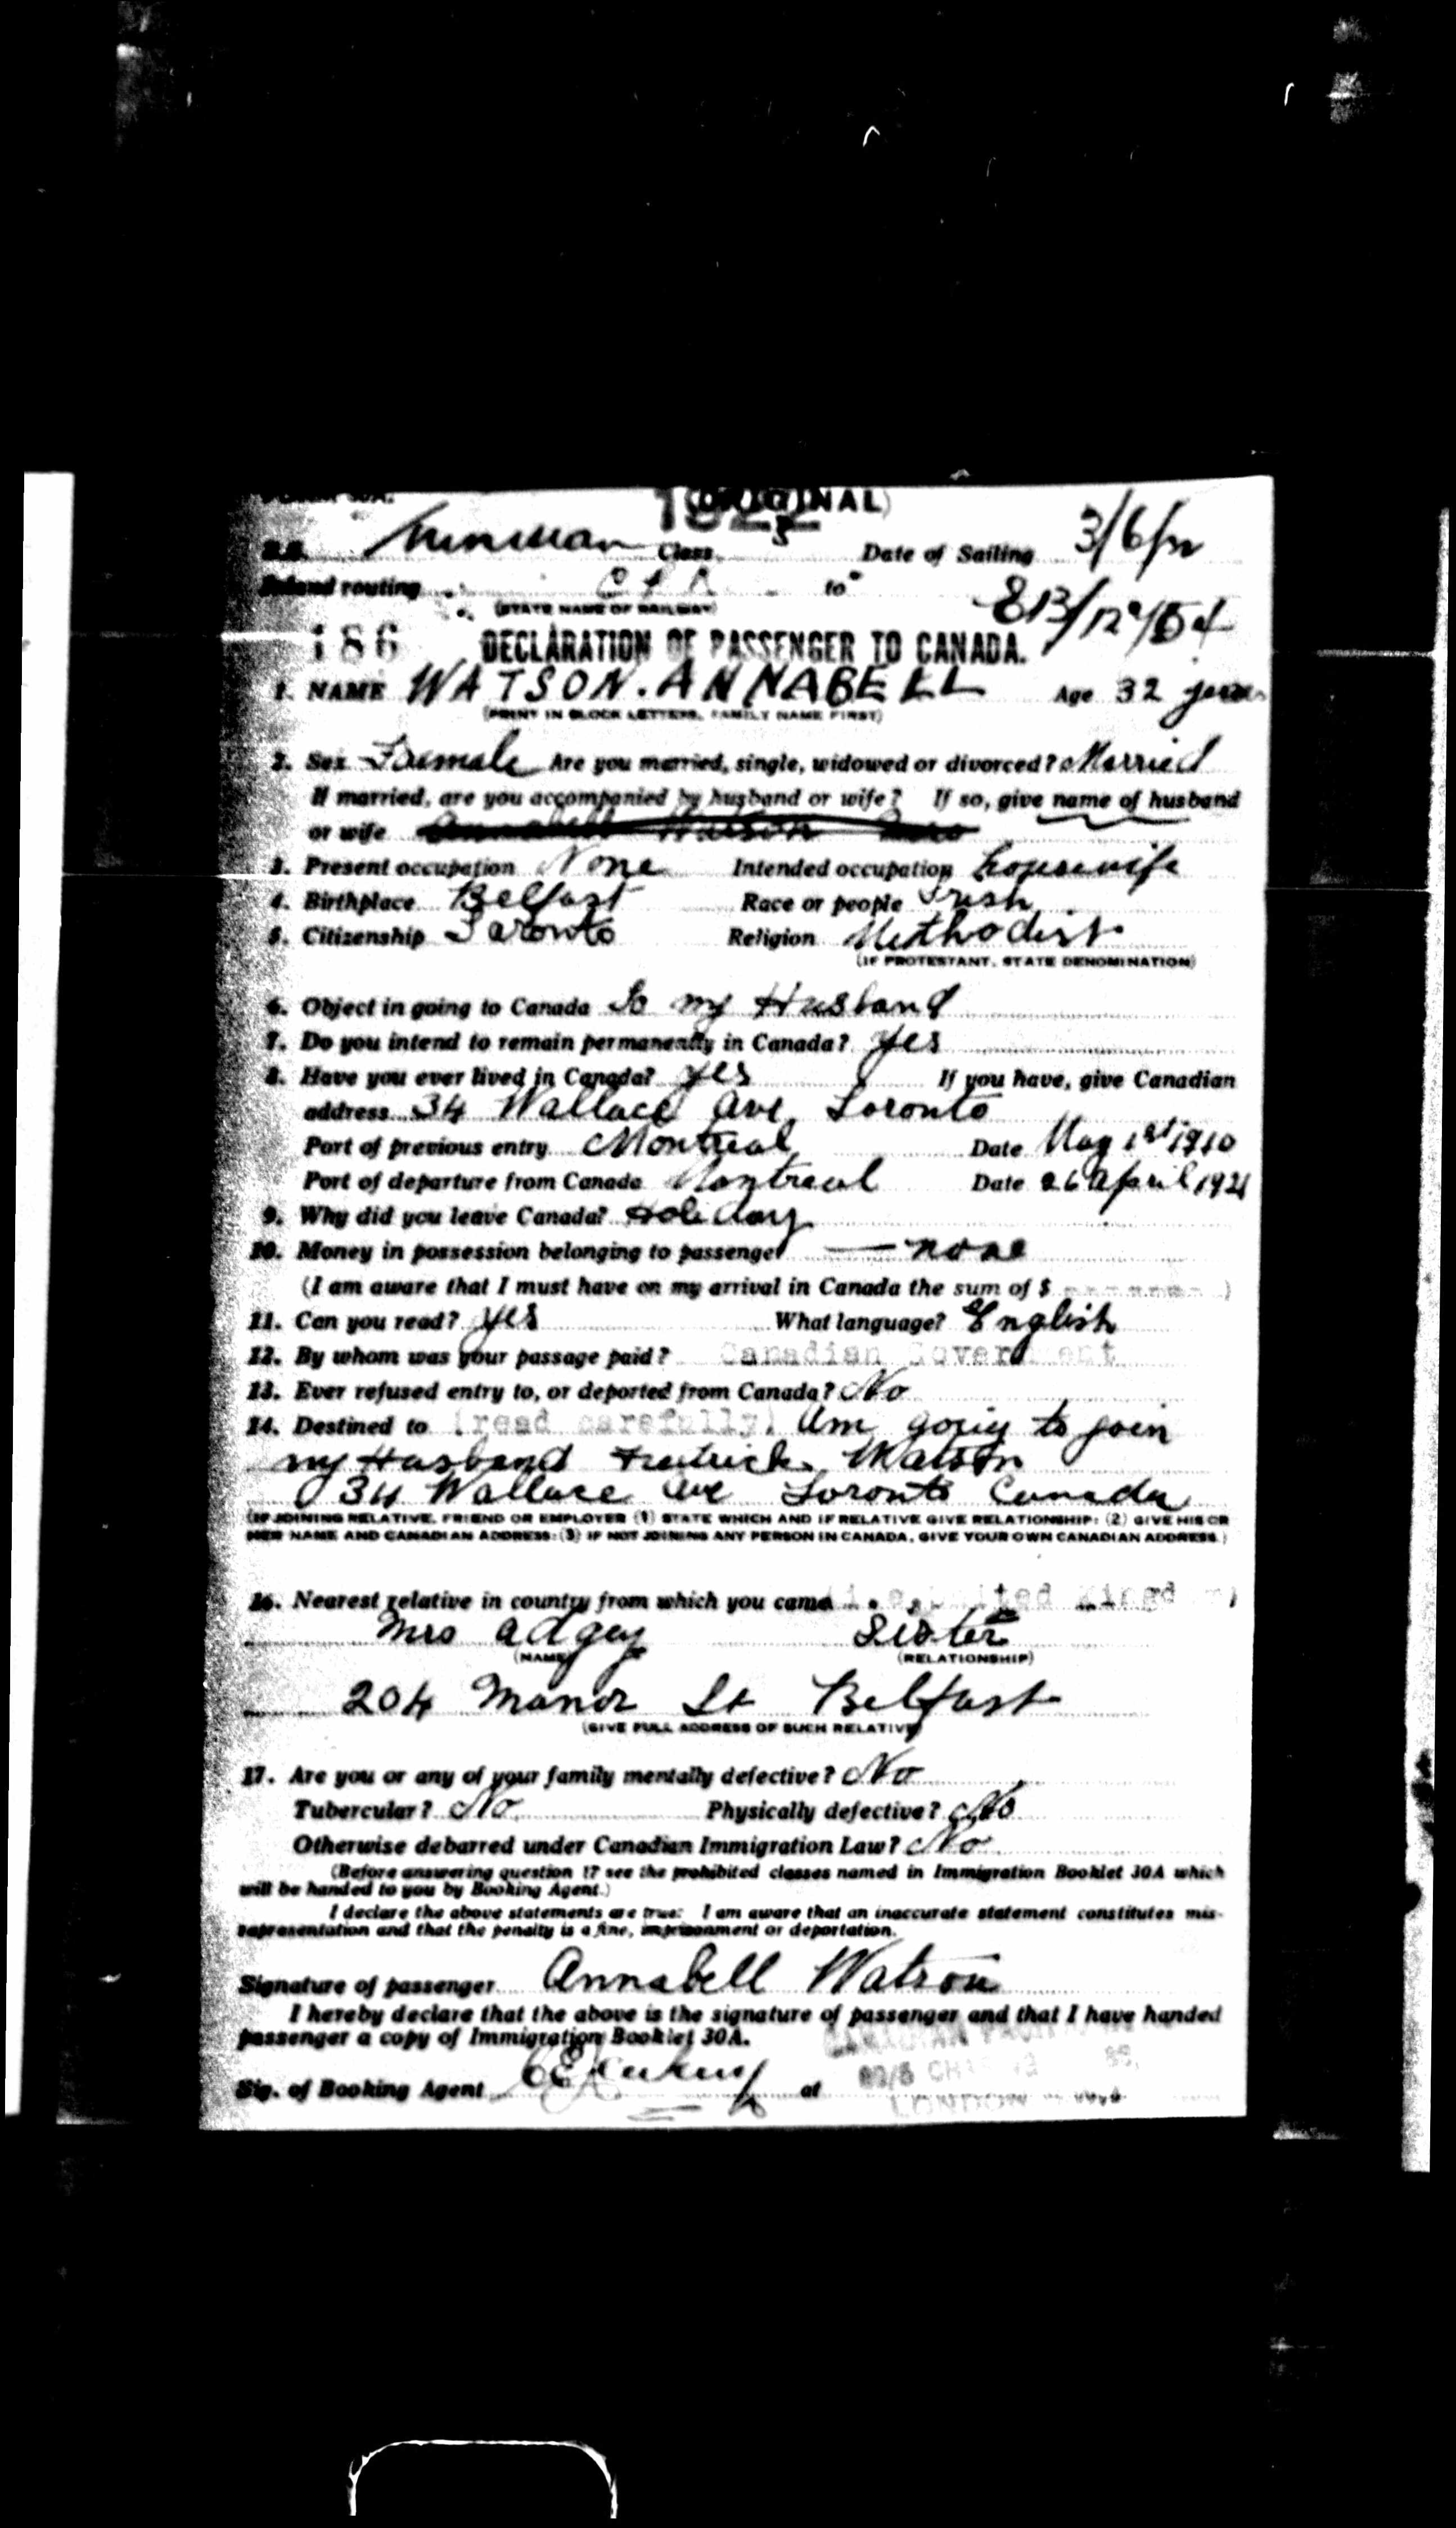 (ORIGINAL)
1922
S.S. Class 3 Date of Sailing 3/6/22
Inland routing C P R to
(STATE NAME OF RAILWAY)
813/12°/54
186 DECLARATION OF PASSENGER TO CANADA.
1. NAME WATSON. ANNABELL Age 32 years
(PRINT IN BLOCK LETTERS, FAMILY NAME FIRST)
2. Sex Female Are you married, single, widowed or divorced? Married
If married, are you accompanied by husband or wife? If so, give name of husband
or wife Annabell Watson
3. Present occupation None Intended occupation housewife
4. Birthplace Belfast Race or people Irish
5. Citizenship Toronto Religion Methodist
(IF PROTESTANT, STATE DENOMINATION)
6. Object in going to Canada To my Husband
7. Do you intend to remain permanently in Canada? Yes
8. Have you ever lived in Canada? yes If you have, give Canadian
address 34 Wallace Ave, Toronto
Port of previous entry Montreal Date May 1st 1910
Port of departure from Canada Montreal Date 26 April 1921
9. Why did you leave Canada? Holiday
10. Money in possession belonging to passenger — none
(I am aware that I must have on my arrival in Canada the sum of $ - - - - - - - )
11. Can you read? yes What language? English
12. By whom was your passage paid? Canadian Government
13. Ever refused entry to, or deported from Canada? No
14. Destined to (read carefully) Am going to join
my Husband Fredrick Watson
34 Wallace Ave Toronto Canada
(IF JOINING RELATIVE, FRIEND OR EMPLOYER (1) STATE WHICH AND IF RELATIVE GIVE RELATIONSHIP: (2) GIVE HIS OR
HER NAME AND CANADIAN ADDRESS: (3) IF NOT JOINING ANY PERSON IN CANADA, GIVE YOUR OWN CANADIAN ADDRESS.)
16. Nearest relative in country from which you came (i.e. United Kingdom)
Mrs Adgey Sister
(NAME) (RELATIONSHIP)
204 Manor St Belfast
(GIVE FULL ADDRESS OF SUCH RELATIVE)
17. Are you or any of your family mentally defective? No
Tubercular? No Physically defective? No
Otherwise debarred under Canadian Immigration Law? No
(Before answering question 17 see the prohibited classes named in Immigration Booklet 30A which
will be handed to you by Booking Agent.)
I declare the above statements are true: I am aware that an inaccurate statement constitutes mis-
representation and that the penalty is a fine, imprisonment or deportation.
Signature of passenger Annabell Watson
I hereby declare that the above is the signature of passenger and that I have handed
passenger a copy of Immigration Booklet 30A.
Sig. of Booking Agent at
LONDON